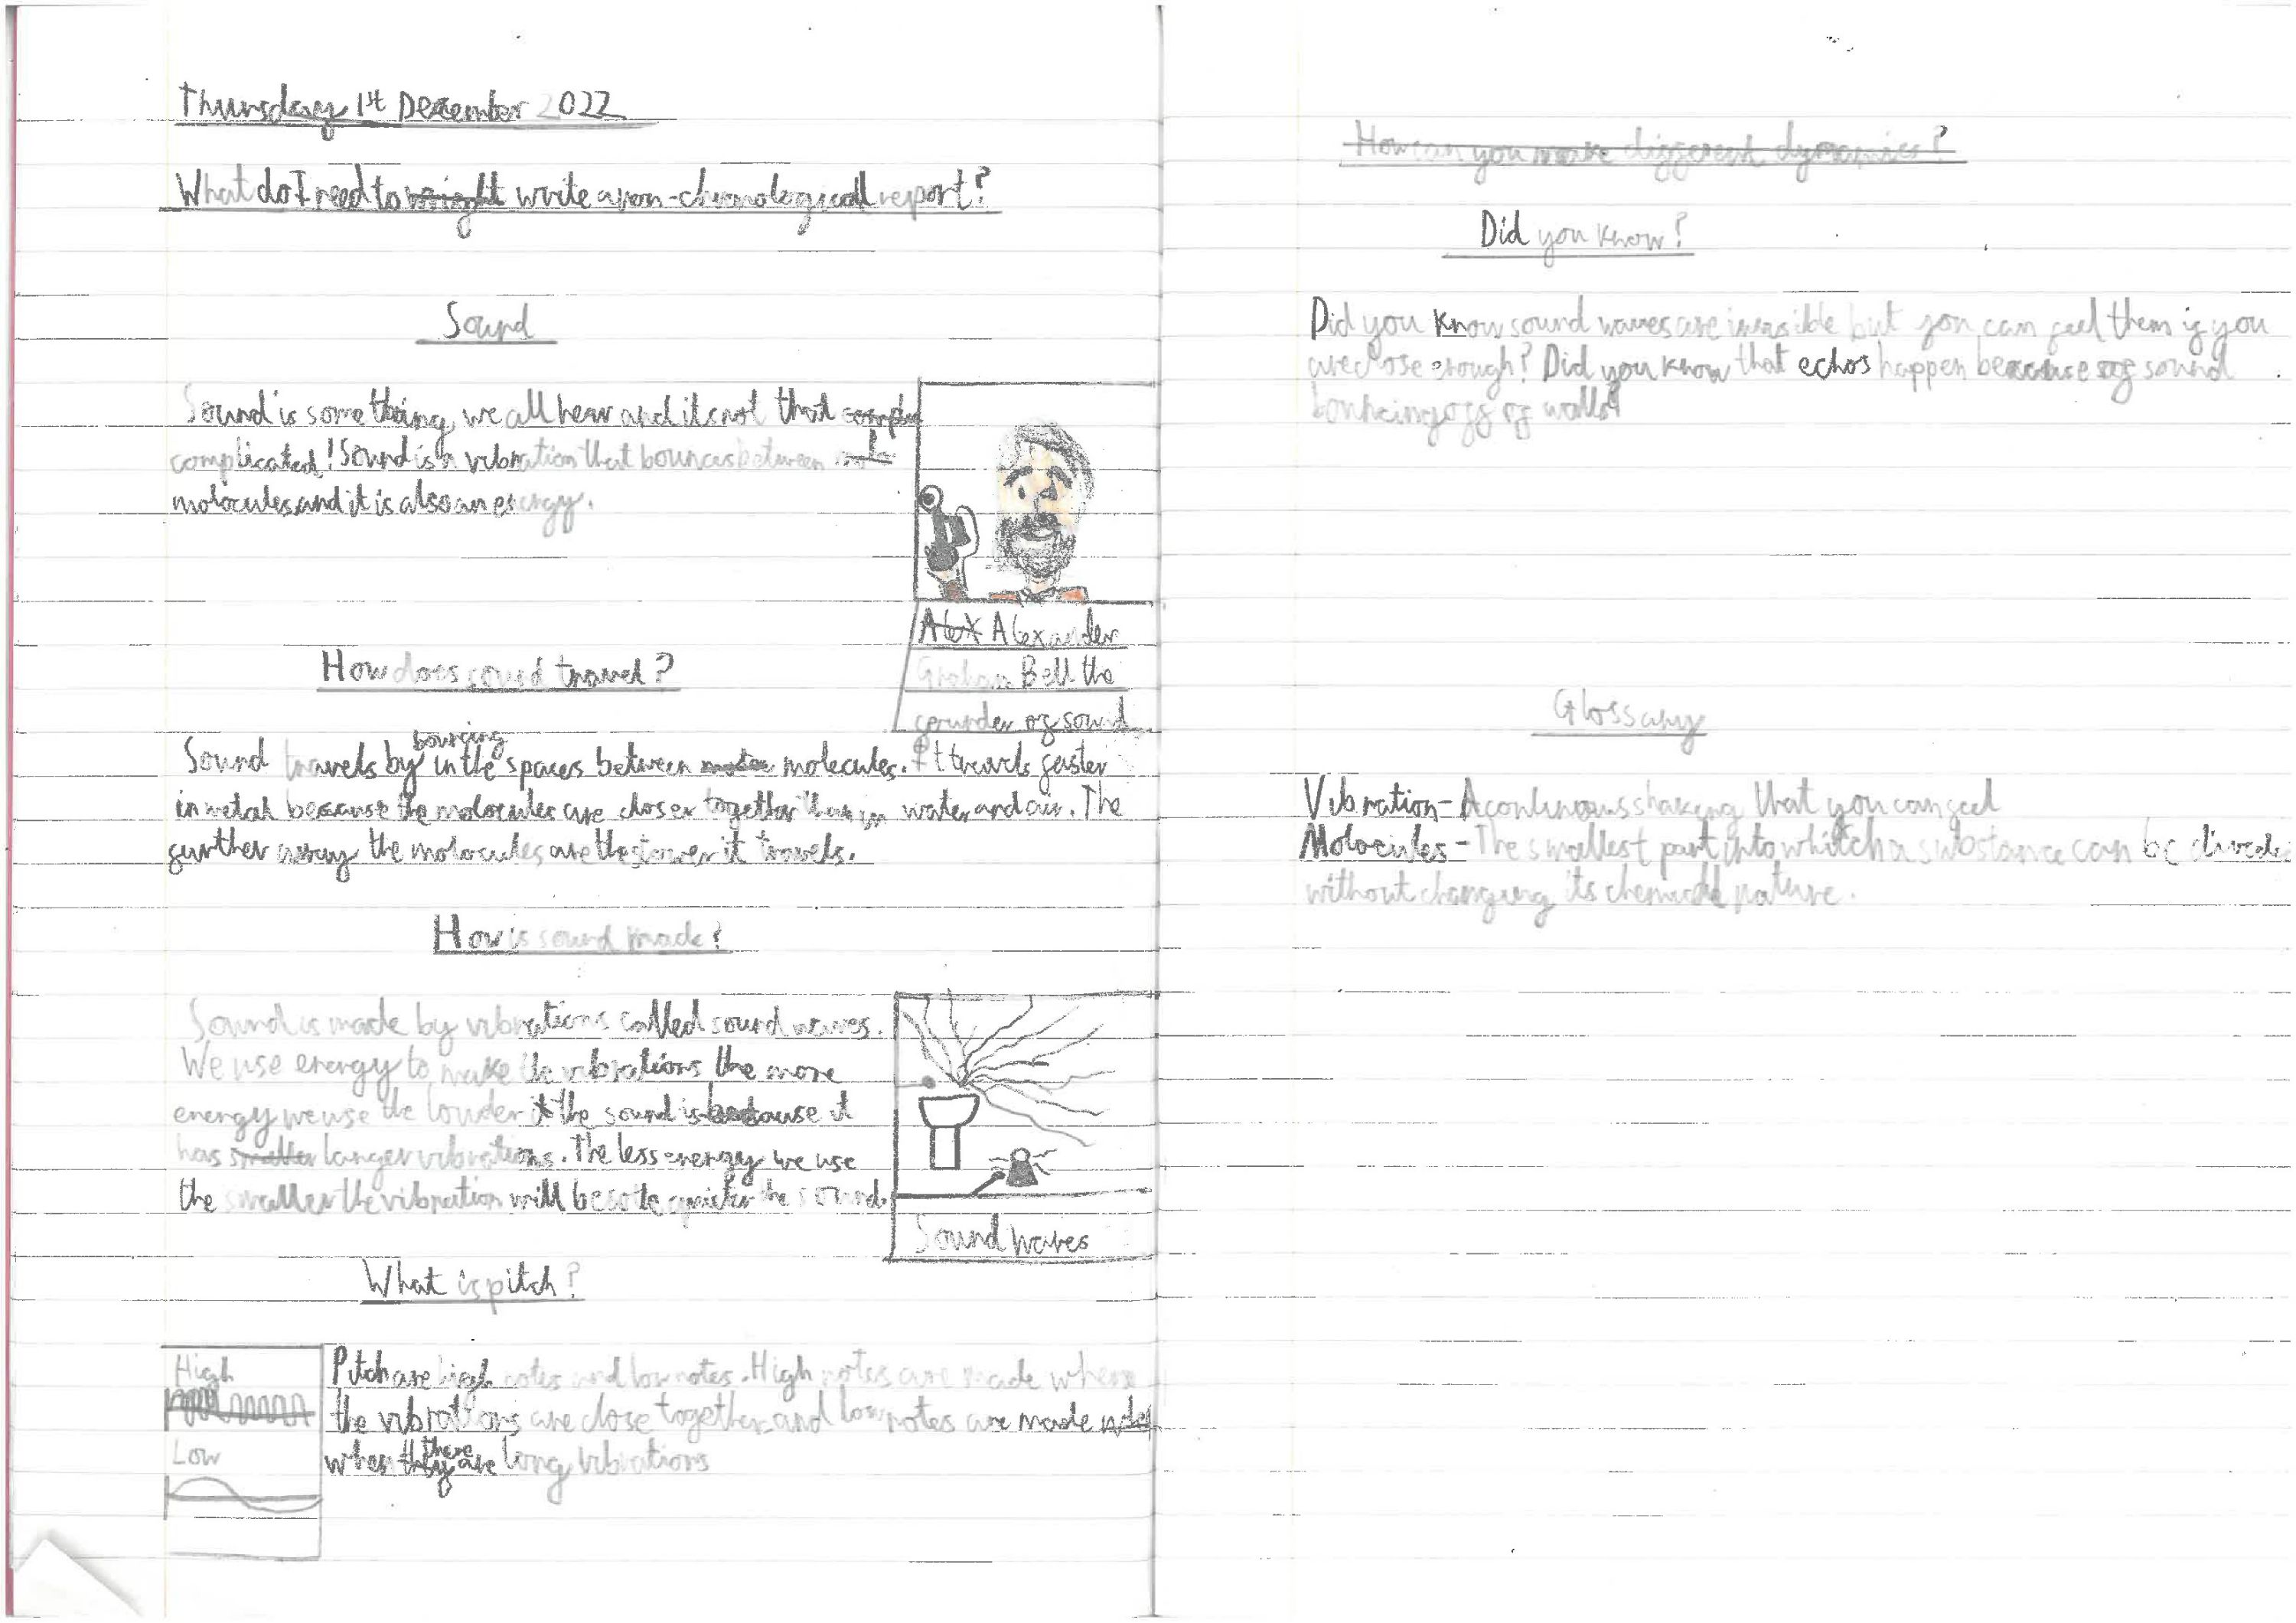 Thursday 1st December 2022
What do I need to wright write a non-chronological report?
Sound
Sound is something we all hear and its not that comple
complicated! Sound is a vibration that bounces between
molocules and it is also an energy.
Alex Alexander
Graham Bell the
founder of sound
How does sound travel?
bouncing
Sound travels by in the spaces between molecules. It travels faster
in metal because the molocules are closer together than in water and air. The
further away the molocules are the slower it travels.
How is sound made?
Sound is made by vibrations called sound waves.
We use energy to make the vibrations the more
energy we use the louder it the sound is because it
has smaller langer vibrations. The less energy we use
the smaller the vibration will be so the quieter the sound.
Sound waves
What is pitch?
High
Low
Pitch are high notes and low notes. High notes are made where
the vibrations are close together and low notes are made
there
when they are long vibrations
How can you make different dynamics?
Did you know?
Did you know sound waves are invisible but you can feel them if you
are close enough? Did you know that echos happen because of sound
off of walls?
Glossary
Vibration - A continuous shaking that you can feel
Molocules - The smallest part into whitch a substance can be divided
without changing its chemical nature.